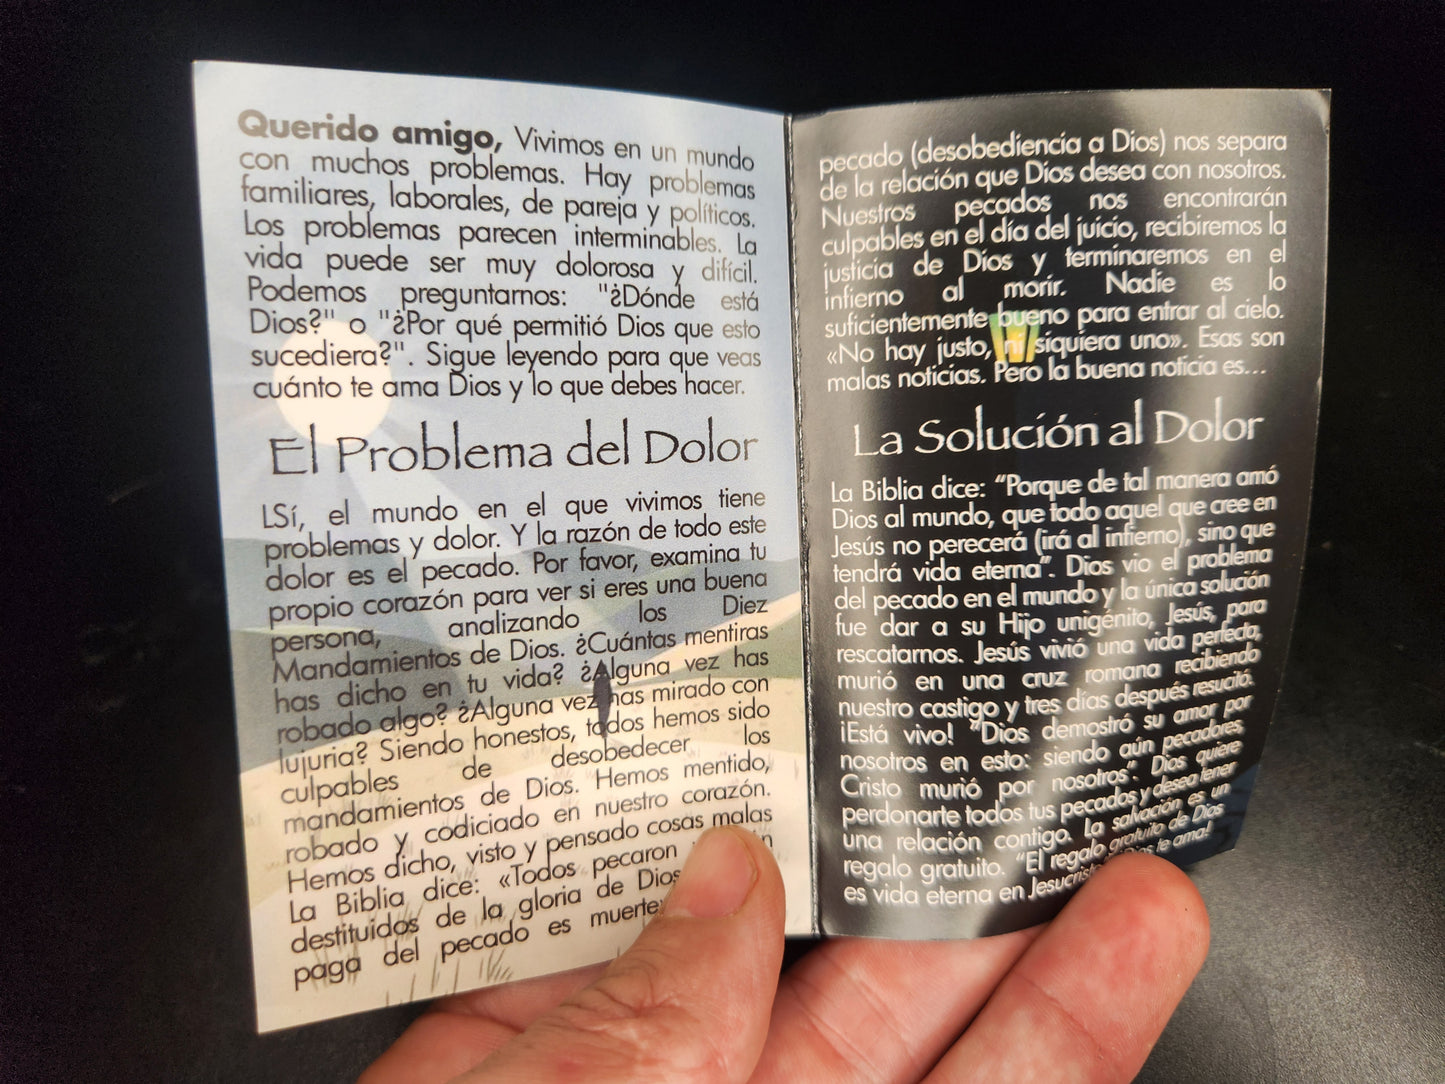 Querido amigo, Vivimos en un mundo
con muchos problemas. Hay problemas
familiares, laborales, de pareja y políticos.
Los problemas parecen interminables. La
vida puede ser muy dolorosa y difícil.
Podemos preguntarnos: "¿Dónde está
Dios?" o "¿Por qué permitió Dios que esto
sucediera?". Sigue leyendo para que veas
cuánto te ama Dios y lo que debes hacer.
El Problema del Dolor
LSí, el mundo en el que vivimos tiene
problemas y dolor. Y la razón de todo este
dolor es el pecado. Por favor, examina tu
propio corazón para ver si eres una buena
persona, analizando los Diez
Mandamientos de Dios. ¿Cuántas mentiras
has dicho en tu vida? ¿Alguna vez has
robado algo? ¿Alguna vez has mirado con
lujuria? Siendo honestos, todos hemos sido
culpables de desobedecer los
mandamientos de Dios. Hemos mentido,
robado y codiciado en nuestro corazón.
Hemos dicho, visto y pensado cosas malas
La Biblia dice: «Todos pecaron
destituidos de la gloria de Dios
paga del pecado es muerte
pecado (desobediencia a Dios) nos separa
de la relación que Dios desea con nosotros.
Nuestros pecados nos encontrarán
culpables en el día del juicio, recibiremos la
justicia de Dios y terminaremos en el
infierno al morir. Nadie es lo
suficientemente bueno para entrar al cielo.
«No hay justo, ni siquiera uno». Esas son
malas noticias. Pero la buena noticia es...
La Solución al Dolor
La Biblia dice: “Porque de tal manera amó
Dios al mundo, que todo aquel que cree en
Jesús no perecerá (irá al infierno), sino que
tendrá vida eterna”. Dios vio el problema
del pecado en el mundo y la única solución
fue dar a su Hijo unigénito, Jesús, para
rescatarnos. Jesús vivió una vida perfecta,
murió en una cruz romana recibiendo
nuestro castigo y tres días después resucitó.
¡Está vivo! "Dios demostró su amor por
nosotros en esto: siendo aún pecadores,
Cristo murió por nosotros". Dios quiere
perdonarte todos tus pecados y desea tener
una relación contigo. La salvación es un
regalo gratuito. “El regalo gratuito de Dios
es vida eterna en Jesucristo te ama!